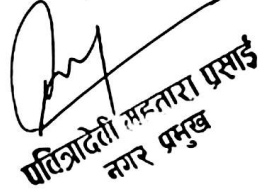 पवित्रादेवी महतारा प्रसाई
नगर प्रमुख